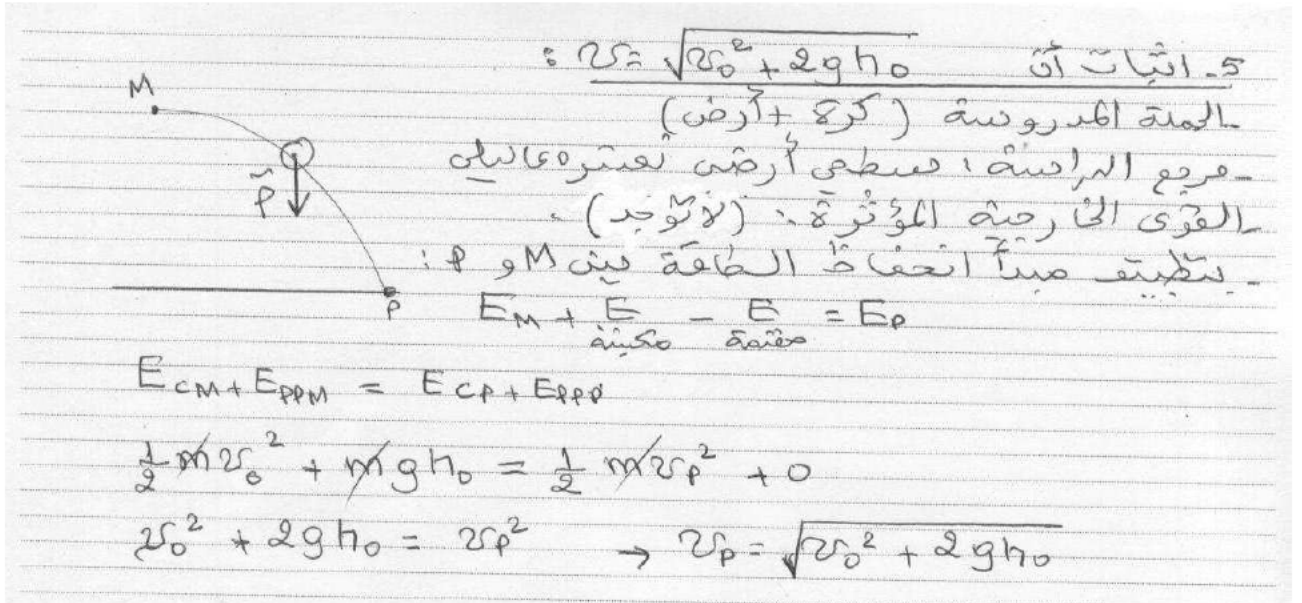 5- اثبات أن v = √(v₀² + 2gh₀) :
- الجملة المدروسة (كرة + أرض)
- مرجع الدراسة : سطحي أرضي نعتبره غاليلي
- القوى الخارجية المؤثرة : (لا توجد) .
- بتطبيق مبدأ انحفاظ الطاقة بين M و P :
M
P⃗
P
E_M + E مكتسبة - E مقدمة = E_P
E_CM + E_PPM = E_CP + E_PPP
1/2 m v₀² + m g h₀ = 1/2 m v_P² + 0
v₀² + 2gh₀ = v_P² → v_P = √(v₀² + 2gh₀)